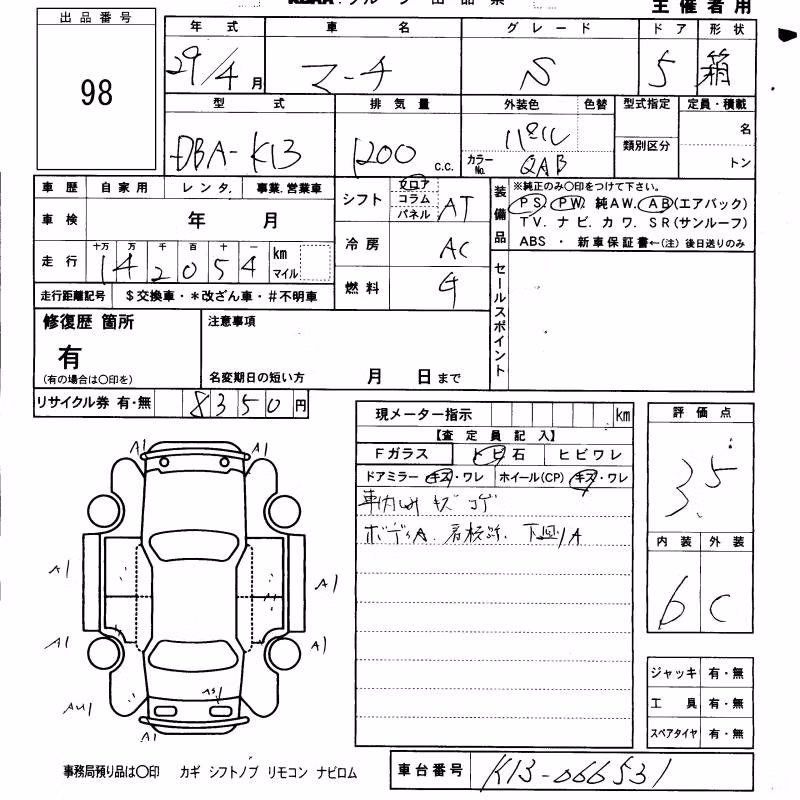 主催者用
出品番号
98
年式 車名 グレード ドア 形状
29/4月 マーチ S 5 箱
型式 排気量 外装色 色替 型式指定 定員・積載
DBA-K13 1200 c.c. パール
カラーNo. QAB 類別区分 名
トン
車歴 自家用 レンタ. 事業.営業車
車検 年 月
走行 十万 万 千 百 十 一
142054 km マイル
走行距離記号 $交換車・*改ざん車・#不明車
シフト フロア コラム パネル AT
冷房 AC
燃料 ガ
装備品 ※純正のみ○印をつけて下さい。
PS PW. 純AW. AB(エアバック)
TV. ナビ. カワ. SR(サンルーフ)
ABS ・ 新車保証書←(注) 後日送りのみ
セールスポイント
修復歴 箇所
有
(有の場合は○印を)
注意事項
名変期日の短い方 月 日まで
リサイクル券 有・無 8350円
現メーター指示 km
【査定員記入】
Fガラス トビ石 ヒビワレ
ドアミラー キズ・ワレ ホイール(CP) キズ・ワレ
車内 キズ コゲ
ボディA. 看板跡. 下回りA
評価点
3.5
内装 外装
b C
A1 A1
A1 A1
A1 A1
AU1 AS1
A1
ジャッキ 有・無
工具 有・無
スペアタイヤ 有・無
事務局預り品は○印 カギ シフトノブ リモコン ナビロム
車台番号 K13-066531